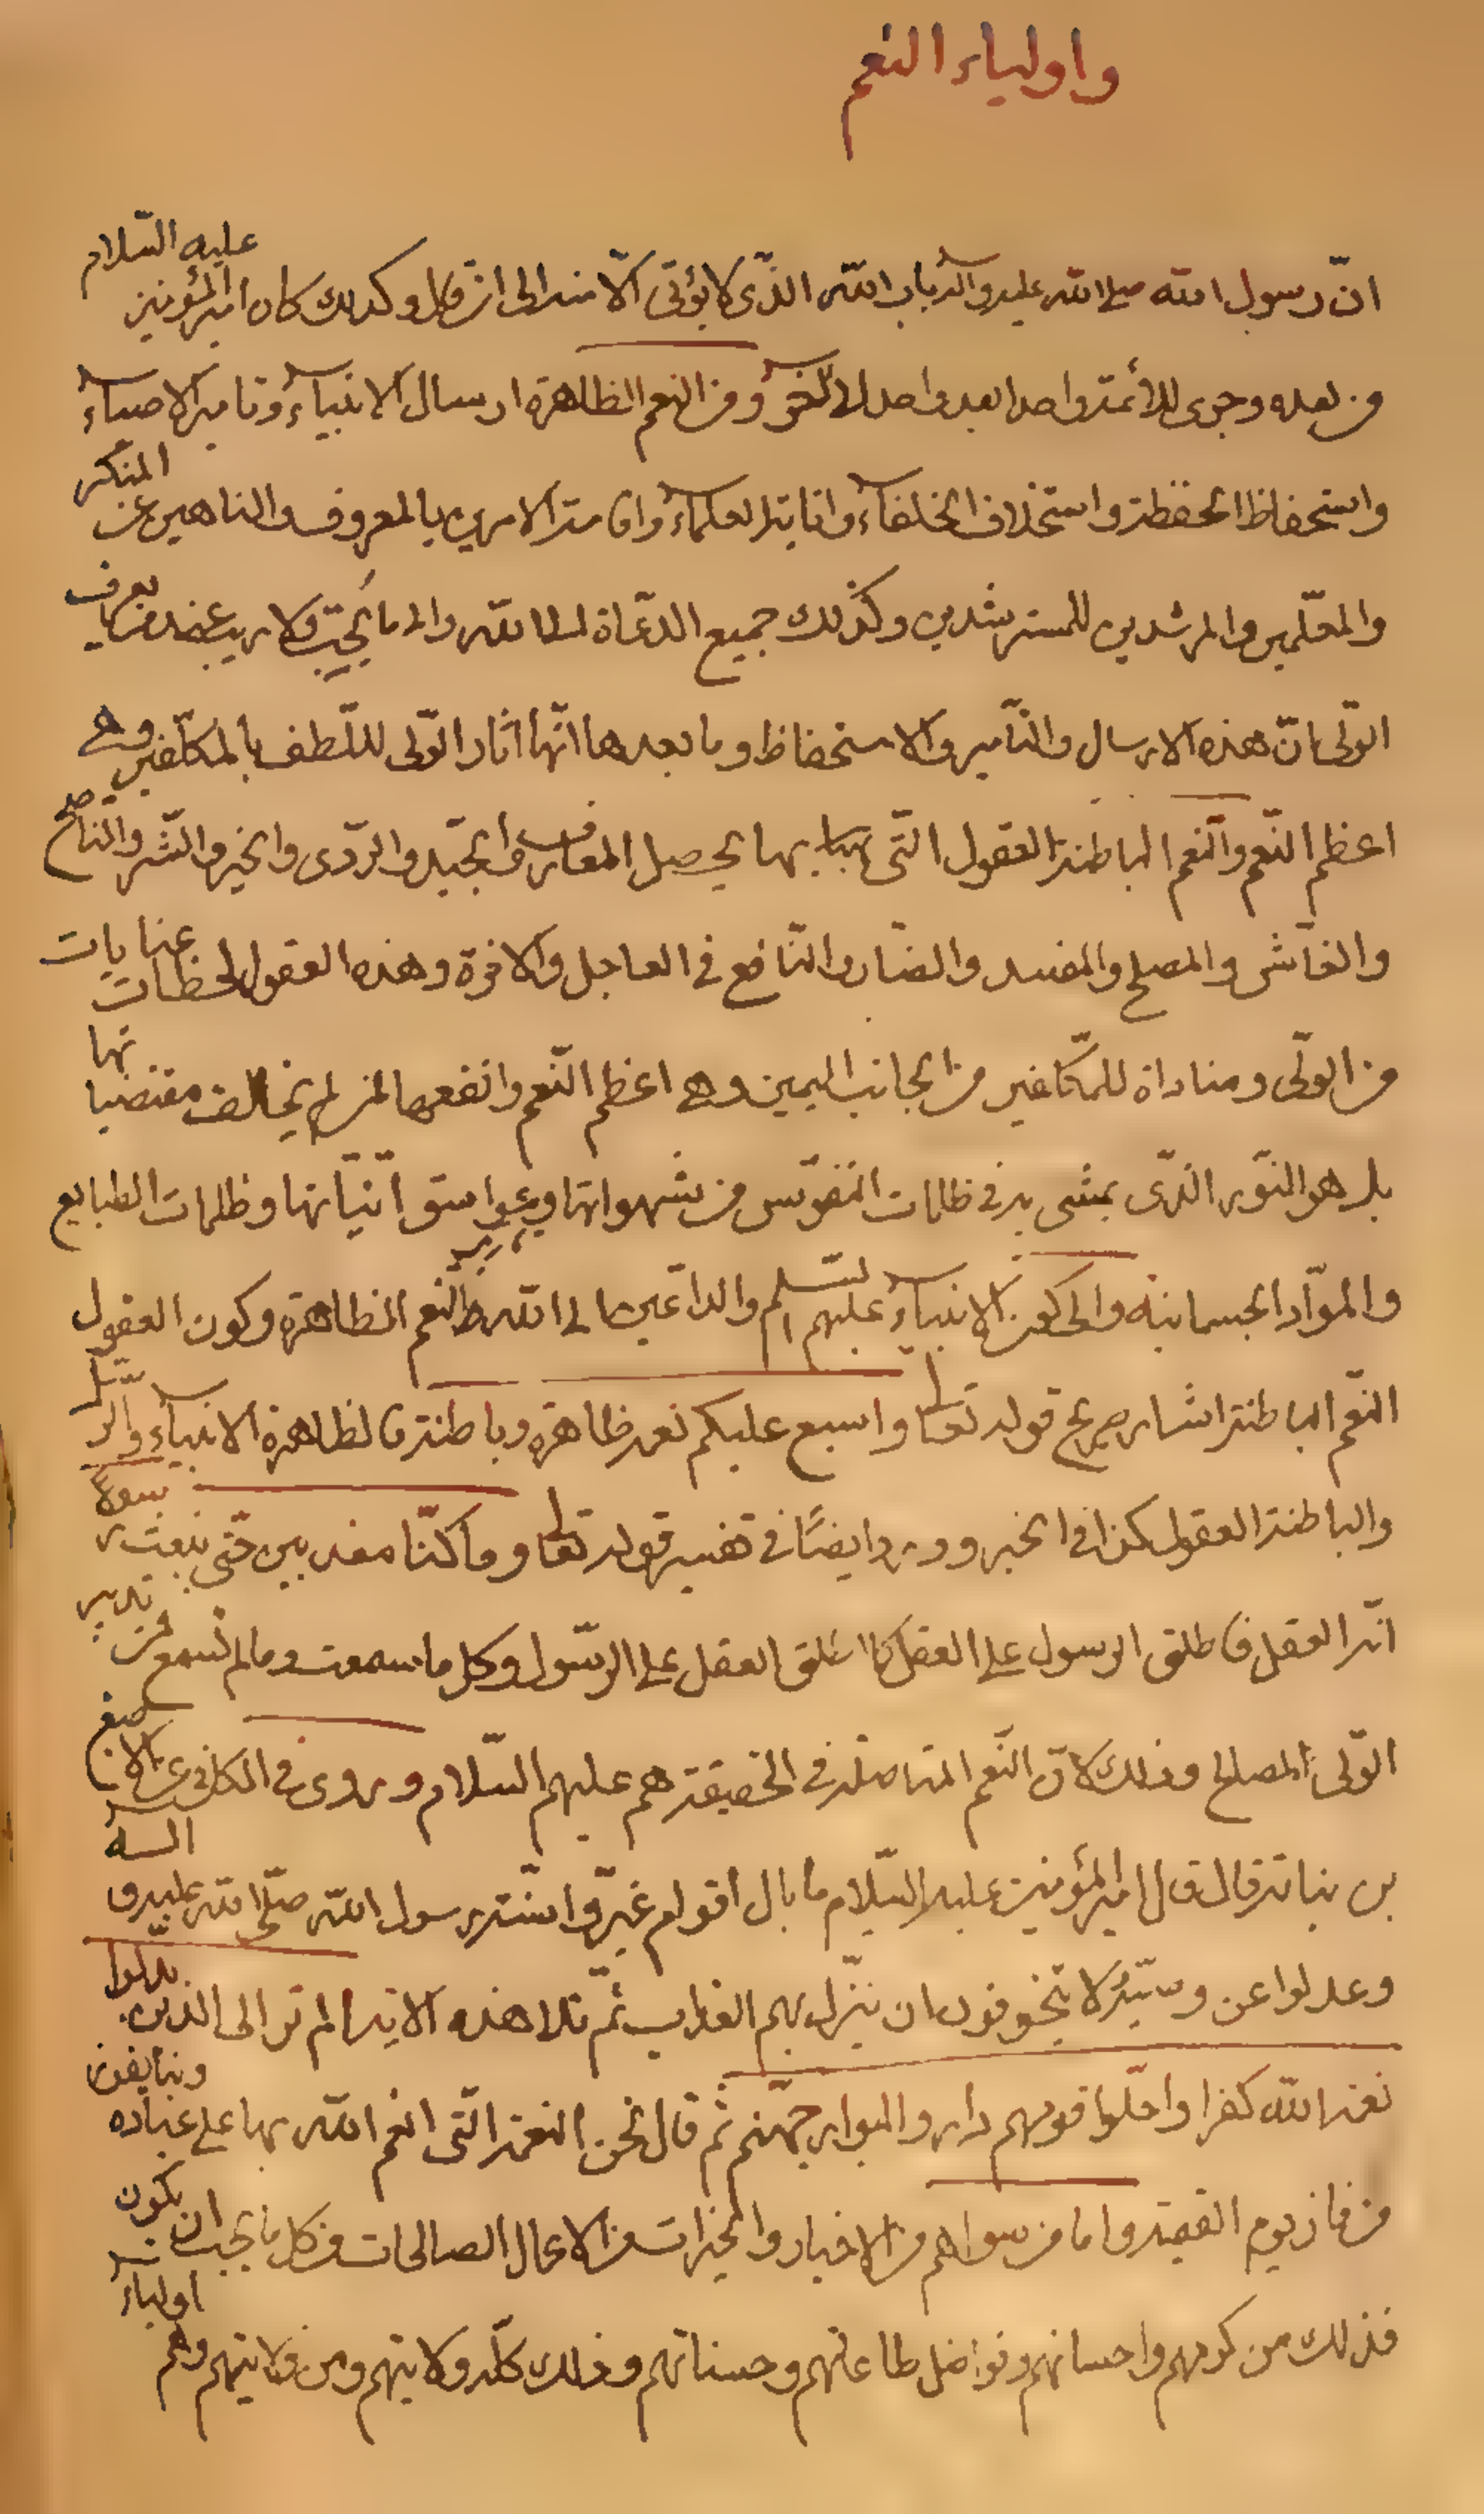 واولياء النعم
انّ رسول الله صلى الله عليه وآله باب الله الذّى لا يؤتى الّا منه الى ان قال وكذلك كان امير المؤمنين عليه السّلام
من بعده وجرى للائمّة واحدا بعد واحد الخ ومن النعم الظاهرة ارسال الانبياءۤ وتامير الاوصياءۤ
واستحفاظ الحفظة واستخلاف الخلفاءۤ وانابة العلماءۤ واقامة الامرين بالمعروف والناهين عن المنكر
والمعلّمين والمرشدين للمسترشدين وكذلك جميع الدّعاة الى الله والى ما يُحِبّ ولا ريب عند من يعرف
الولّى انّ هذه الارسال والتّامير والاستحفاظ وما بعدها انّها اثار الولّى للّطف بالمكلّفين وهى
اعظم النّعم والنّعم الباطنة العقول التّى بها يحصل المعارف والجيّد والرّدى والخير والشّر والنّاصح
والغاّش والمصلح والمفسد والضّار والنّافع فى العاجل والاخرة وهذه العقول لحظات عنايات
من الولّى ومناداة للمكلّفين من الجانب اليمين وهى اعظم النّعم وانفعها لمن لم يخالف مقتضياتها
بل هو النّور الذّى يمشى به فى ظلمات النّفوس من شهواتها ودعوا ستو انّياتها وظلمات الطبايع
والموّاد الجسمانيه والى كون الانبياءۤ عليهم السّلم والداعّين الى الله من النعم الظاهرة وكون العقول
النعّم الباطنة اشار صريح قوله تعالى واسبغ عليكم نعمه ظاهرة وباطنة فالظاهرة الانبياءۤ والرّسل
والباطنة العقول كذا فى الخبر وورد ايضًا فى تفسير قوله تعالى وما كنّا معذبين حتّى نبعث رسولا
انّه العقل فاطلق الرسول على العقل كما اطلق العقل على الرسّول وكل ما سمعت وما لم تسمع من تدبير
الولّى المصلح وذلك لانّ النّعم المتاصلة فى الحقيقة هم عليهم السّلام وروى فى الكافى عن الاصبغ
بن نباتة قال قال امير المؤمنين عليه السّلام ما بال اقوام غيرّوا سنّة رسول الله صلّى الله عليه وآله
وعدلوا عن وصيّه لا يتخوفون ان ينزّل بهم العذاب ثمّ تلا هذه الاية الم تر الى الذين بدّلوا
نعمة الله كفرا واحلّوا قومهم دار البوار جهنّم ثم قال نحن النعمة التّى انعم الله بها على عباده وبنا يفوز
من فاز يوم القيمة واما من سواهم من الاخيار والخيرات من الاعمال الصالحات من كل ما يحب ان يكون
فذلك من كرمهم واحسانهم وفواضل طاعاتهم وحسناتهم وذلك كلّه ولايتهم ومن ولايتهم وهم اولياءۤ